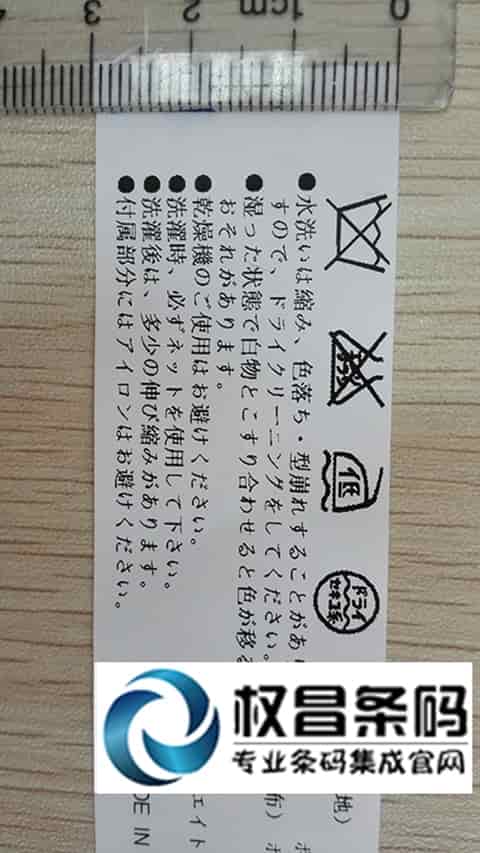 0 1cm 2 3 4
エンソサラシ
低
ドライ
セキユ系
●水洗いは縮み、色落ち・型崩れすることがあり
すので、ドライクリーニングをしてください。
●湿った状態で白物とこすり合わせると色が移る
おそれがあります。
●乾燥機のご使用はお避けください。
●洗濯時、必ずネットを使用して下さい。
●洗濯後は、多少の伸び縮みがあります。
●付属部分にはアイロンはお避けください。
地)
布)
エイト
DE IN
权昌条码
专业条码集成官网